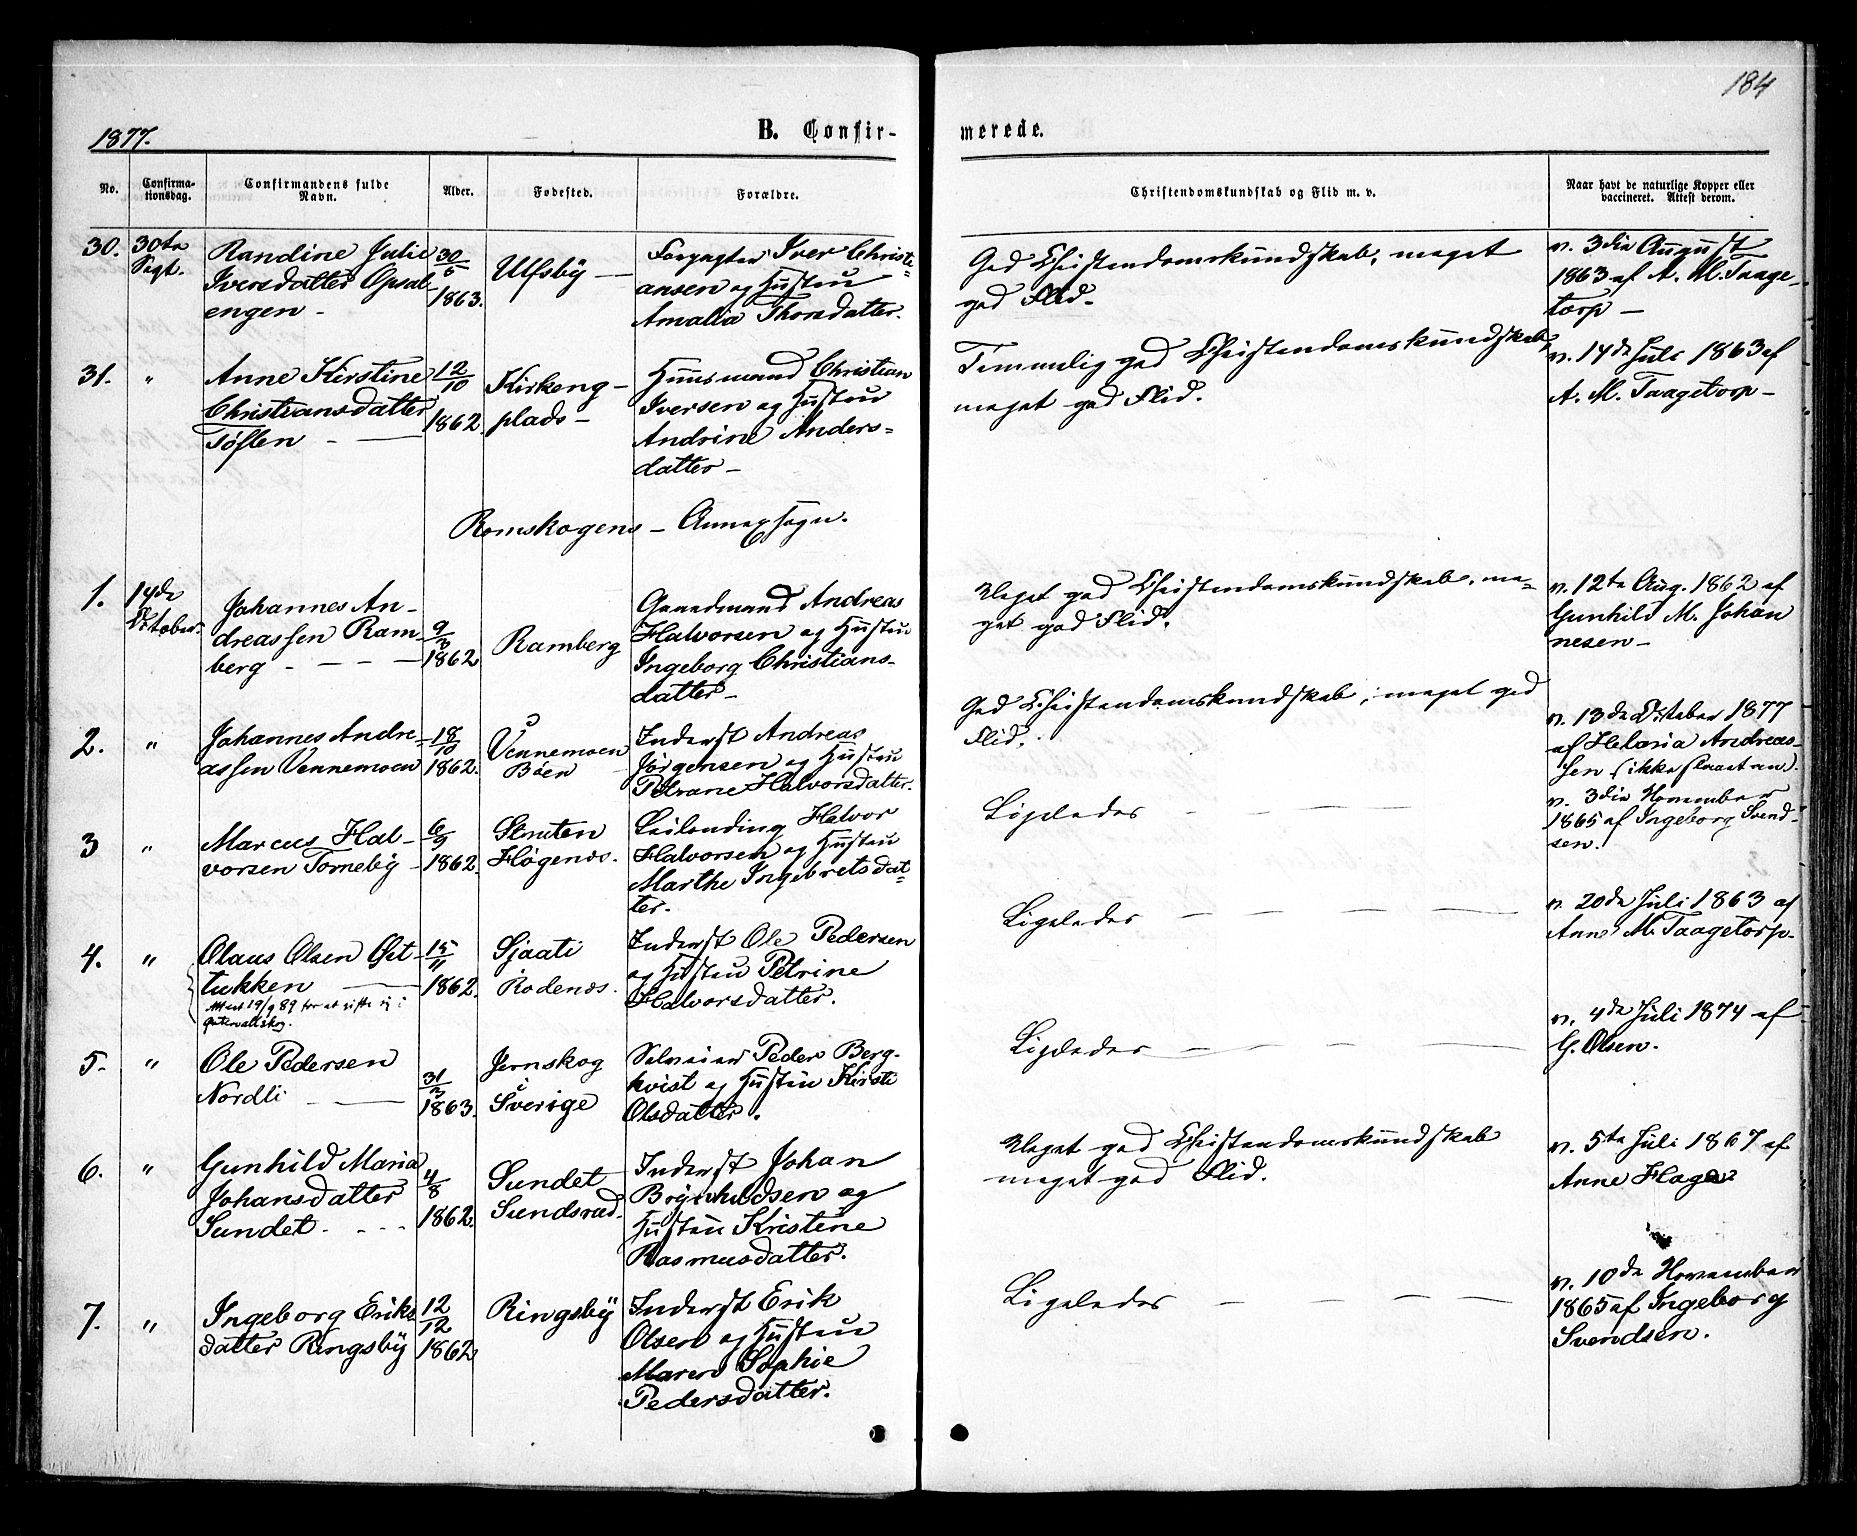 184
1877.
B. Confir-
merede.
No.
Confirma-
tionsdag.
Confirmandens fulde
Navn.
Alder.
Fødested.
Forældre.
Christendomskundskab og Flid m. v.
Naar havt de naturlige Kopper eller
vaccineret. Attest derom.
30.
30te
Sept.
Randine Julie
Iversdatter Opsal
engen -
30/5
1863.
Ulfsby -
Forpagter Iver Christi-
ansen og Hustru
Amalia Thorsdatter.
God Christendomskundskab, meget
god Flid.
v. 3die August
1863 af A. M. Taage-
torp -
31.
"
Anne Kirstine
Christiansdatter
Töflen -
12/10
1862.
Kirkeng -
plads -
Huusmand Christian
Iversen og Hustru
Andrine Anders-
datter -
Temmelig god Christendomskundskab,
meget god Flid.
v. 14de Juli 1863 af
A. M. Taagetorp -
Romskogens - Annexsogn.
1.
14de
October.
Johannes An-
dreassen Ram-
berg -
9/3
1862
Ramberg
Gaardmand Andreas
Halvorsen og Hustru
Ingeborg Christians-
datter -
Meget god Christendomskundskab, me-
get god Flid.
v. 12te Aug. 1862 af
Gunhild M. Johan
nesen -
2.
"
Johannes Andre-
assen Vennemoen
18/10
1862.
Vennemoen
Böen
Inderst Andreas
Jörgensen og Hustru
Petrane Halvorsdatter.
God Christendomskundskab, meget god
Flid.
v. 13de October 1877
af Helaria Andreas-
sen (ikke slaaet an).
3
"
Marcus Hal-
vorsen Torneby -
6/9
1862.
Struten
Högenæs.
Leilending Halvor
Halvorsen og Hustru
Marthe Ingebretsdat-
ter.
Ligeledes
v. 3die November
1865 af Ingeborg Svend-
sen.
4.
"
Olaus Olsen Öst-
tukken
Attest 19/9 89 for at gifte sig i
15/11
1862.
Sjaati
Rödenæs.
Inderst Ole Pedersen
og Hustru Petrine
Halvorsdatter.
Ligeledes
v. 20de Juli 1863 af
Anne M. Taagetorp.
5.
"
Ole Pedersen
Nordli
31/3
1863.
Jernskog
i
Sverige
Selveier Peder Berg-
kvist og Hustru Kirsti
Olsdatter.
Ligeledes
v. 4de Juli 1874 af
G. Olsen.
6.
"
Gunhild Maria
Johansdatter
Sundet
4/8
1862.
Sundet
Sundsrød.
Inderst Johan
Brynhildsen og
Hustru Kristine
Rasmusdatter.
Meget god Christendomskundskab
meget god Flid.
v. 5te Juli 1867 af
Anne Hage
7.
"
Ingeborg Eriks
datter Ringsby
12/12
1862
Ringsby
Inderst Erik
Olsen og Hustru
Maren Sophie
Pedersdatter.
Ligeledes
v. 10de November
1865 af Ingeborg
Svendsen.